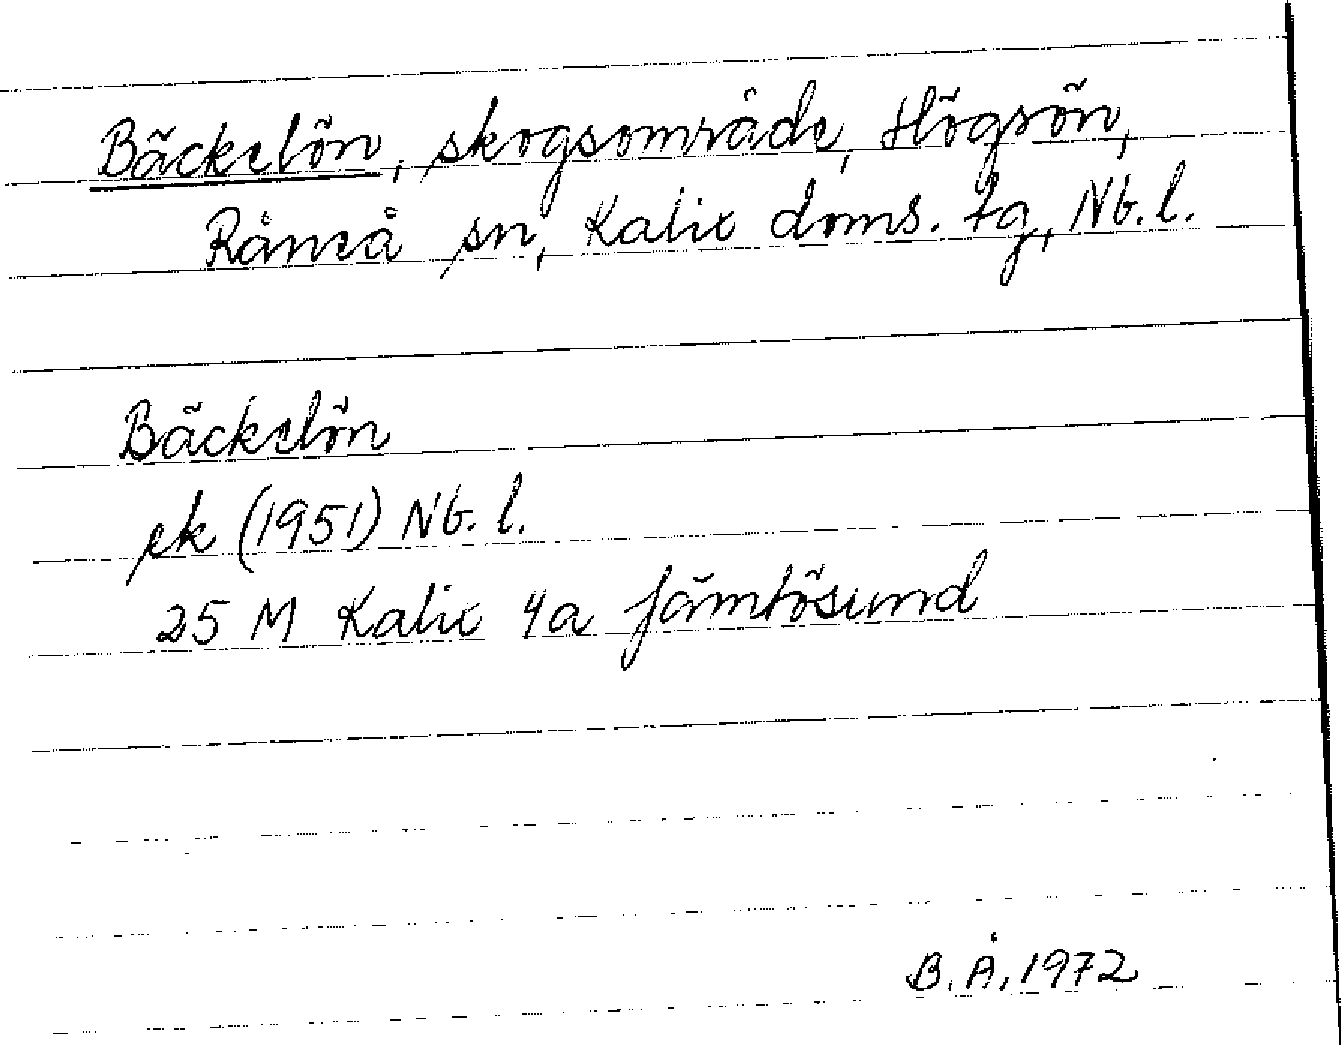 Bäckelön, skogsområde, Högsön,
Råneå sn, Kalix doms. tg, Nb. l.
Bäckelön
ek (1951) Nb. l.
25 M Kalix 4a Jämtösund
B. Å. 1972